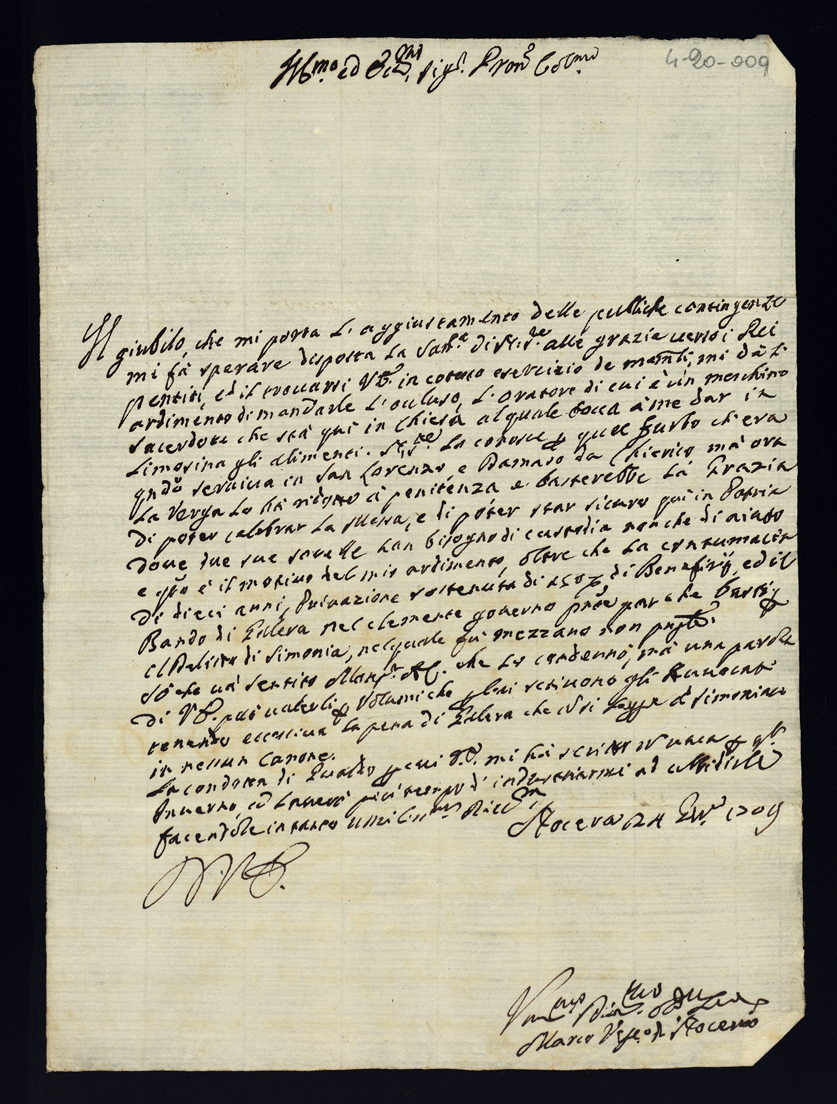 Ill.mo ed Ecc.mo Sig.r Pron' Col.mo
4-20-009
Il giubilo, che mi porta l'aggiustamento delle publiche contingenze
mi fà sperare disposta la San.tà di alle grazie verso i Rei
pentiti, ed il trovarsi V.E. in cotesto esercizio de mi dà l'
ardimento di mandarle l'occluso, l'oratore di cui è un meschino
sacerdote che stà qui in chiesa al quale tocca à me dar in
limosina gli alimenti. lo conosce quel furbo ch'era
q.ndo serviva in San Lorenzo, e Damaso da Chierico mà ora
la verga lo hà ridotto à penitenza e basterebbe la Grazia
di poter celebrar la Messa, e di poter star sicuro qui in Patria
dove due sue sorelle han bisogno di custodia non che di aiuto
e q.sto è il motivo del mio ardimento, oltre che la contumacia
di dieci anni, Privazione sostenuta di di Beneficij, ed il
Bando di Galera nel clemente governo par che basti p
il Delitto di simonia, nel quale fù mezzano non
Sò che và sentito Mons.r che lo condennò, mà una parola
di V.E. può valerli volumi che scrivono gli Avvocati
tenendo eccessiva la pena di Galera che si legge à simoniaci
in nessun Canone.
La condotta di Gualdo V.E. mi hà scritto p q.sto
Inverno, ed haverà più tempo d'industriarmi ad ubbidirla
facendole intanto
Nocera 24 1709
D. V.E.
Marco Vesc.o di Nocera